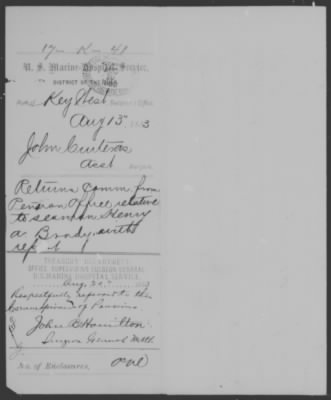 U. S. Marine-Hospital Service,
DISTRICT OF THE
Key West
Surgeon's Office,
Aug 13" 1883
John Guiteras
Asst Surgeon.
Returns Comm. from
Pension Office relative
to seaman Henry
A. Brady with
TREASURY DEPARTMENT,
OFFICE SUPERVISING SURGEON GENERAL
U.S. MARINE HOSPITAL SERVICE
Aug. 1883
Respectfully referred to the
Commissioner of Pensions.
John B. Hamilton
Surgeon General M.H.S.
No. of Enclosures, one